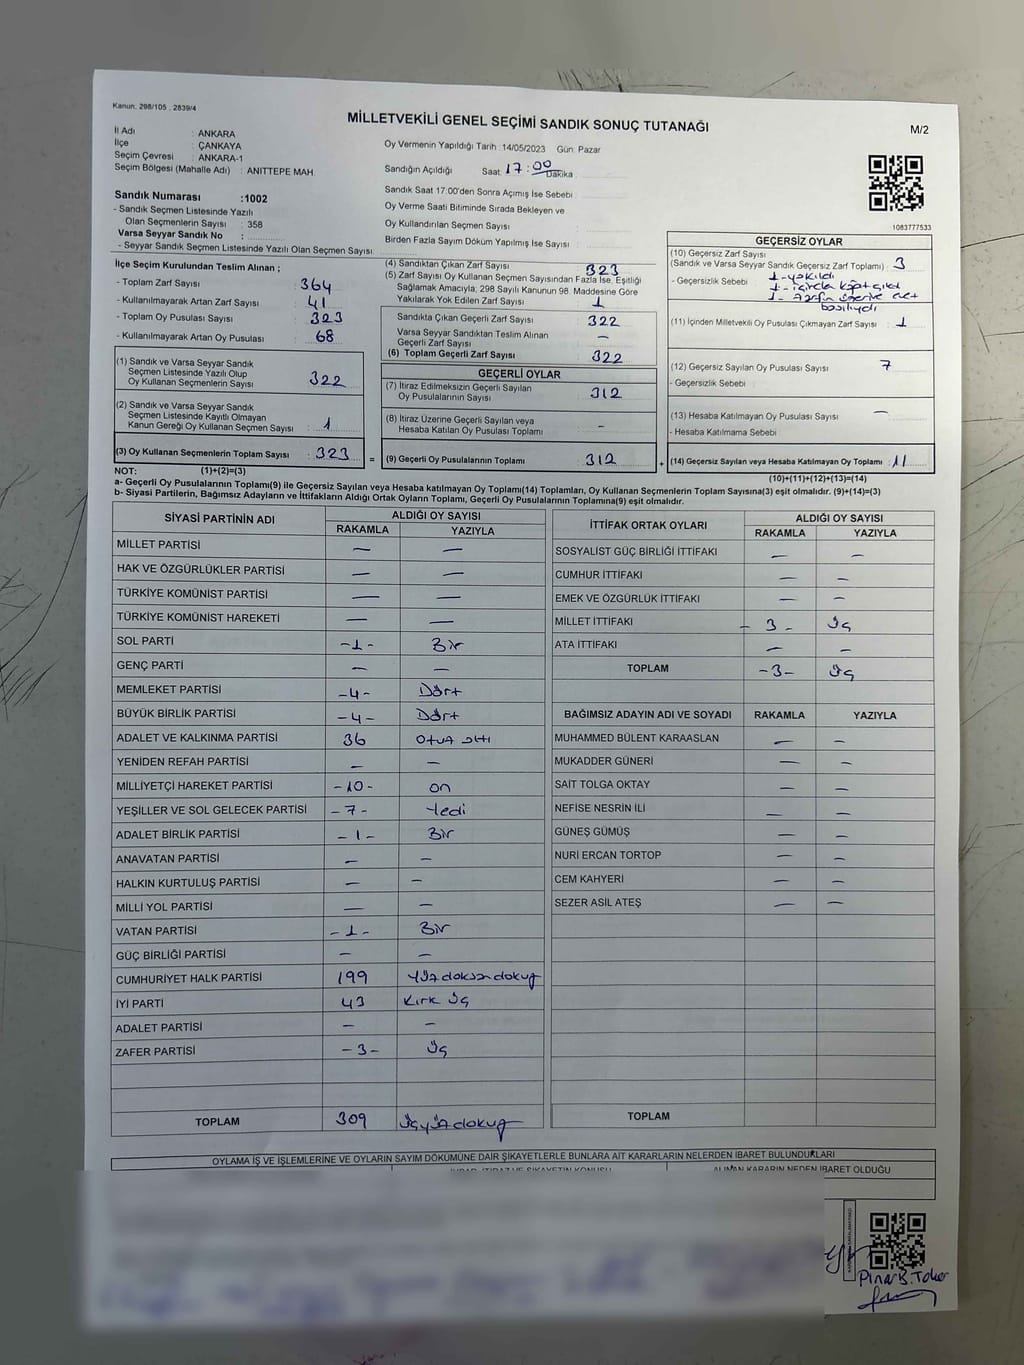 Kanun: 298/105 , 2839/4
MİLLETVEKİLİ GENEL SEÇİMİ SANDIK SONUÇ TUTANAĞI
M/2
İl Adı : ANKARA
İlçe : ÇANKAYA
Seçim Çevresi : ANKARA-1
Seçim Bölgesi (Mahalle Adı) : ANITTEPE MAH.
Sandık Numarası :1002
- Sandık Seçmen Listesinde Yazılı
Olan Seçmenlerin Sayısı : 358
Varsa Seyyar Sandık No :
- Seyyar Sandık Seçmen Listesinde Yazılı Olan Seçmen Sayısı:
Oy Vermenin Yapıldığı Tarih : 14/05/2023 Gün: Pazar
Sandığın Açıldığı Saat: 17:00 Dakika
Sandık Saat 17:00'den Sonra Açımış İse Sebebi :
Oy Verme Saati Bitiminde Sırada Bekleyen ve
Oy Kullandırılan Seçmen Sayısı :
Birden Fazla Sayım Döküm Yapılmış İse Sayısı :
1083777533
İlçe Seçim Kurulundan Teslim Alınan ;
- Toplam Zarf Sayısı : 364
- Kullanılmayarak Artan Zarf Sayısı : 41
- Toplam Oy Pusulası Sayısı : 323
- Kullanılmayarak Artan Oy Pusulası : 68
(1) Sandık ve Varsa Seyyar Sandık
Seçmen Listesinde Yazılı Olup
Oy Kullanan Seçmenlerin Sayısı : 322
(2) Sandık ve Varsa Seyyar Sandık
Seçmen Listesinde Kayıtlı Olmayan
Kanun Gereği Oy Kullanan Seçmen Sayısı : 1
(3) Oy Kullanan Seçmenlerin Toplam Sayısı : 323 =
(4) Sandıktan Çıkan Zarf Sayısı : 323
(5) Zarf Sayısı Oy Kullanan Seçmen Sayısından Fazla İse, Eşitliği
Sağlamak Amacıyla, 298 Sayılı Kanunun 98. Maddesine Göre
Yakılarak Yok Edilen Zarf Sayısı : 1
Sandıkta Çıkan Geçerli Zarf Sayısı : 322
Varsa Seyyar Sandıktan Teslim Alınan
Geçerli Zarf Sayısı : —
(6) Toplam Geçerli Zarf Sayısı : 322
GEÇERLİ OYLAR
(7) İtiraz Edilmeksizin Geçerli Sayılan
Oy Pusulalarının Sayısı : 312
(8) İtiraz Üzerine Geçerli Sayılan veya
Hesaba Katılan Oy Pusulası Toplamı : -
(9) Geçerli Oy Pusulalarının Toplamı : 312 +
GEÇERSİZ OYLAR
(10) Geçersiz Zarf Sayısı
(Sandık ve Varsa Seyyar Sandık Geçersiz Zarf Toplamı) : 3
- Geçersizlik Sebebi : 1-yakıldı
basılıydı
(11) İçinden Milletvekili Oy Pusulası Çıkmayan Zarf Sayısı : 1
(12) Geçersiz Sayılan Oy Pusulası Sayısı : 7
- Geçersizlik Sebebi :
(13) Hesaba Katılmayan Oy Pusulası Sayısı : —
- Hesaba Katılmama Sebebi :
(14) Geçersiz Sayılan veya Hesaba Katılmayan Oy Toplamı : 11
NOT: (1)+(2)=(3)
(10)+(11)+(12)+(13)=(14)
a- Geçerli Oy Pusulalarının Toplamı(9) ile Geçersiz Sayılan veya Hesaba katılmayan Oy Toplamı(14) Toplamları, Oy Kullanan Seçmenlerin Toplam Sayısına(3) eşit olmalıdır. (9)+(14)=(3)
b- Siyasi Partilerin, Bağımsız Adayların ve İttifakların Aldığı Ortak Oyların Toplamı, Geçerli Oy Pusulalarının Toplamına(9) eşit olmalıdır.
SİYASİ PARTİNİN ADI ALDIĞI OY SAYISI
RAKAMLA YAZIYLA
MİLLET PARTİSİ — —
HAK VE ÖZGÜRLÜKLER PARTİSİ — —
TÜRKİYE KOMÜNİST PARTİSİ — —
TÜRKİYE KOMÜNİST HAREKETİ — —
SOL PARTİ -1- Bir
GENÇ PARTİ — —
MEMLEKET PARTİSİ -4- Dört
BÜYÜK BİRLİK PARTİSİ -4- Dört
ADALET VE KALKINMA PARTİSİ 36 otuz altı
YENİDEN REFAH PARTİSİ — —
MİLLİYETÇİ HAREKET PARTİSİ -10- on
YEŞİLLER VE SOL GELECEK PARTİSİ -7- Yedi
ADALET BİRLİK PARTİSİ -1- Bir
ANAVATAN PARTİSİ — —
HALKIN KURTULUŞ PARTİSİ — —
MİLLİ YOL PARTİSİ — —
VATAN PARTİSİ -1- Bir
GÜÇ BİRLİĞİ PARTİSİ — —
CUMHURİYET HALK PARTİSİ 199 Yüz doksan dokuz
İYİ PARTİ 43 Kırk üç
ADALET PARTİSİ — —
ZAFER PARTİSİ -3- Üç
TOPLAM 309 Üçyüz dokuz
İTTİFAK ORTAK OYLARI ALDIĞI OY SAYISI
RAKAMLA YAZIYLA
SOSYALİST GÜÇ BİRLİĞİ İTTİFAKI — —
CUMHUR İTTİFAKI — —
EMEK VE ÖZGÜRLÜK İTTİFAKI — —
MİLLET İTTİFAKI - 3 - Üç
ATA İTTİFAKI — —
TOPLAM -3- Üç
BAĞIMSIZ ADAYIN ADI VE SOYADI RAKAMLA YAZIYLA
MUHAMMED BÜLENT KARAASLAN — —
MUKADDER GÜNERİ — —
SAİT TOLGA OKTAY — —
NEFİSE NESRİN İLİ — —
GÜNEŞ GÜMÜŞ — —
NURİ ERCAN TORTOP — —
CEM KAHYERİ — —
SEZER ASİL ATEŞ — —
TOPLAM
OYLAMA İŞ VE İŞLEMLERİNE VE OYLARIN SAYIM DÖKÜMÜNE DAİR ŞİKAYETLERLE BUNLARA AİT KARARLARIN NELERDEN İBARET BULUNDUKLARI
ALINAN KARARIN NEDEN İBARET OLDUĞU
Pınar B. Toker